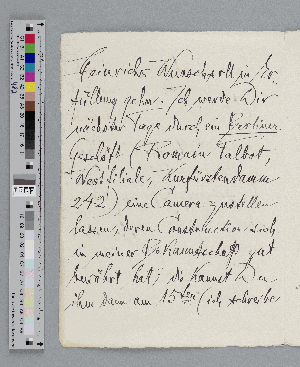 Heinrichs Wunsch doch in Er-
füllung gehn. Ich werde Dir
nächster Tage durch ein Berliner
Geschäft (Romain Talbot,
Westfiliale, Kurfürstendamm
242) eine Camera zustellen
lassen, deren Construction sich
in meiner Bekanntschaft gut
bewährt hat; so kannst Du
ihm dann am 15ten (ich schreibe